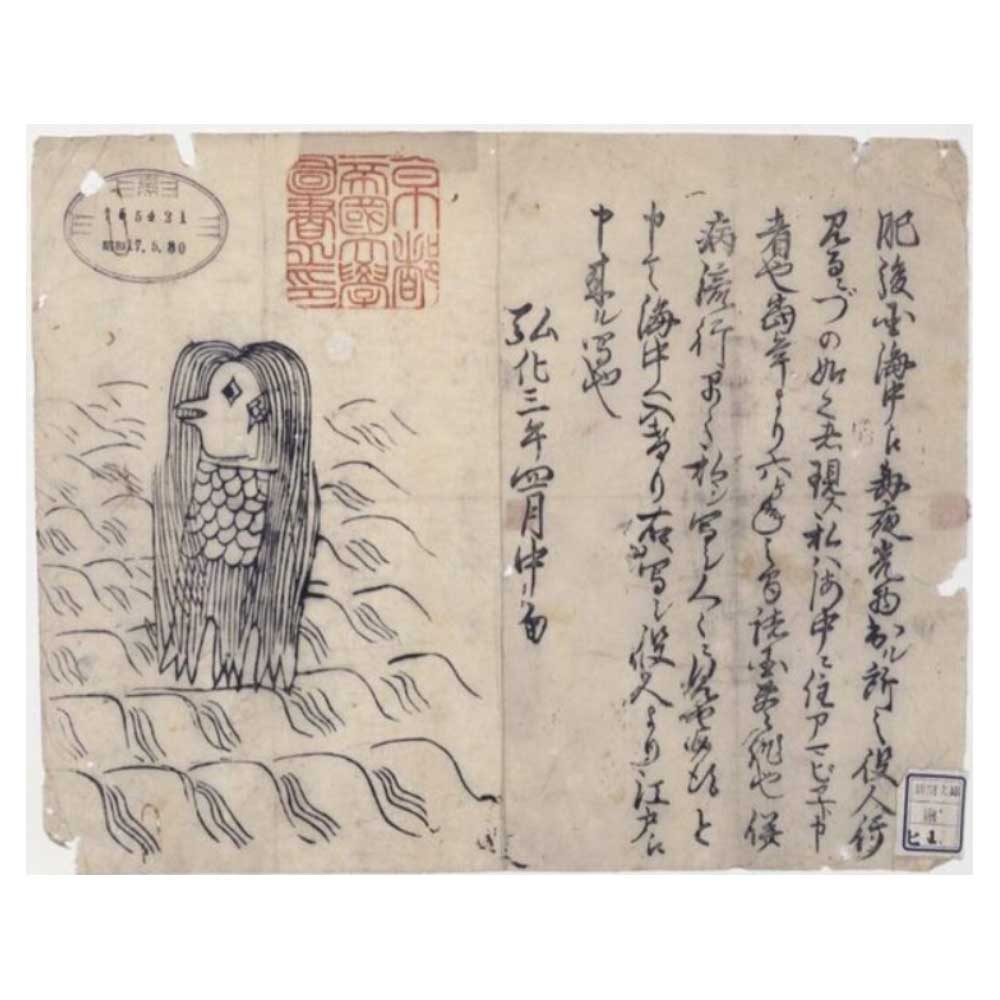 肥後国海中え毎夜光物出ル所之役人行
見るニづの如之者現ス私ハ海中ニ住アマビヱト申
者也当年より六ヶ年之間諸国豊作也併
病流行早々私シ写シ人々ニ見セ候得と
申て海中へ入けり右写シ役人より江戸え
申来ル写也
弘化三年四月中旬
京都
帝國大學
圖書之印
昭和17.5.30